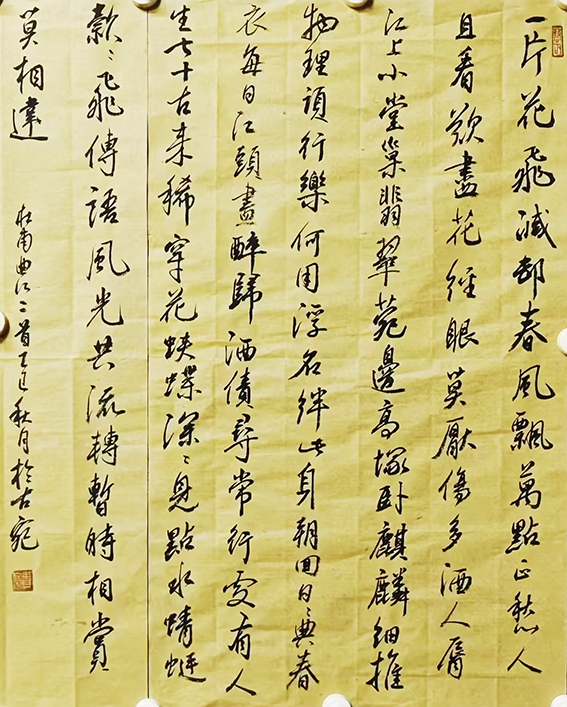 一片花飛減却春風飄萬點正愁人
且看欲盡花經眼莫厭傷多酒人唇
江上小堂巢翡翠苑邊高塚卧麒麟細推
物理須行樂何用浮名絆此身朝回日〻典春
衣每日江頭盡醉歸酒債尋常行處有人
生七十古来稀穿花蛺蝶深〻見點水蜻蜓
款〻飛傳語風光共流轉暫時相賞
莫相違
杜甫曲江二首乙巳秋月於古宛